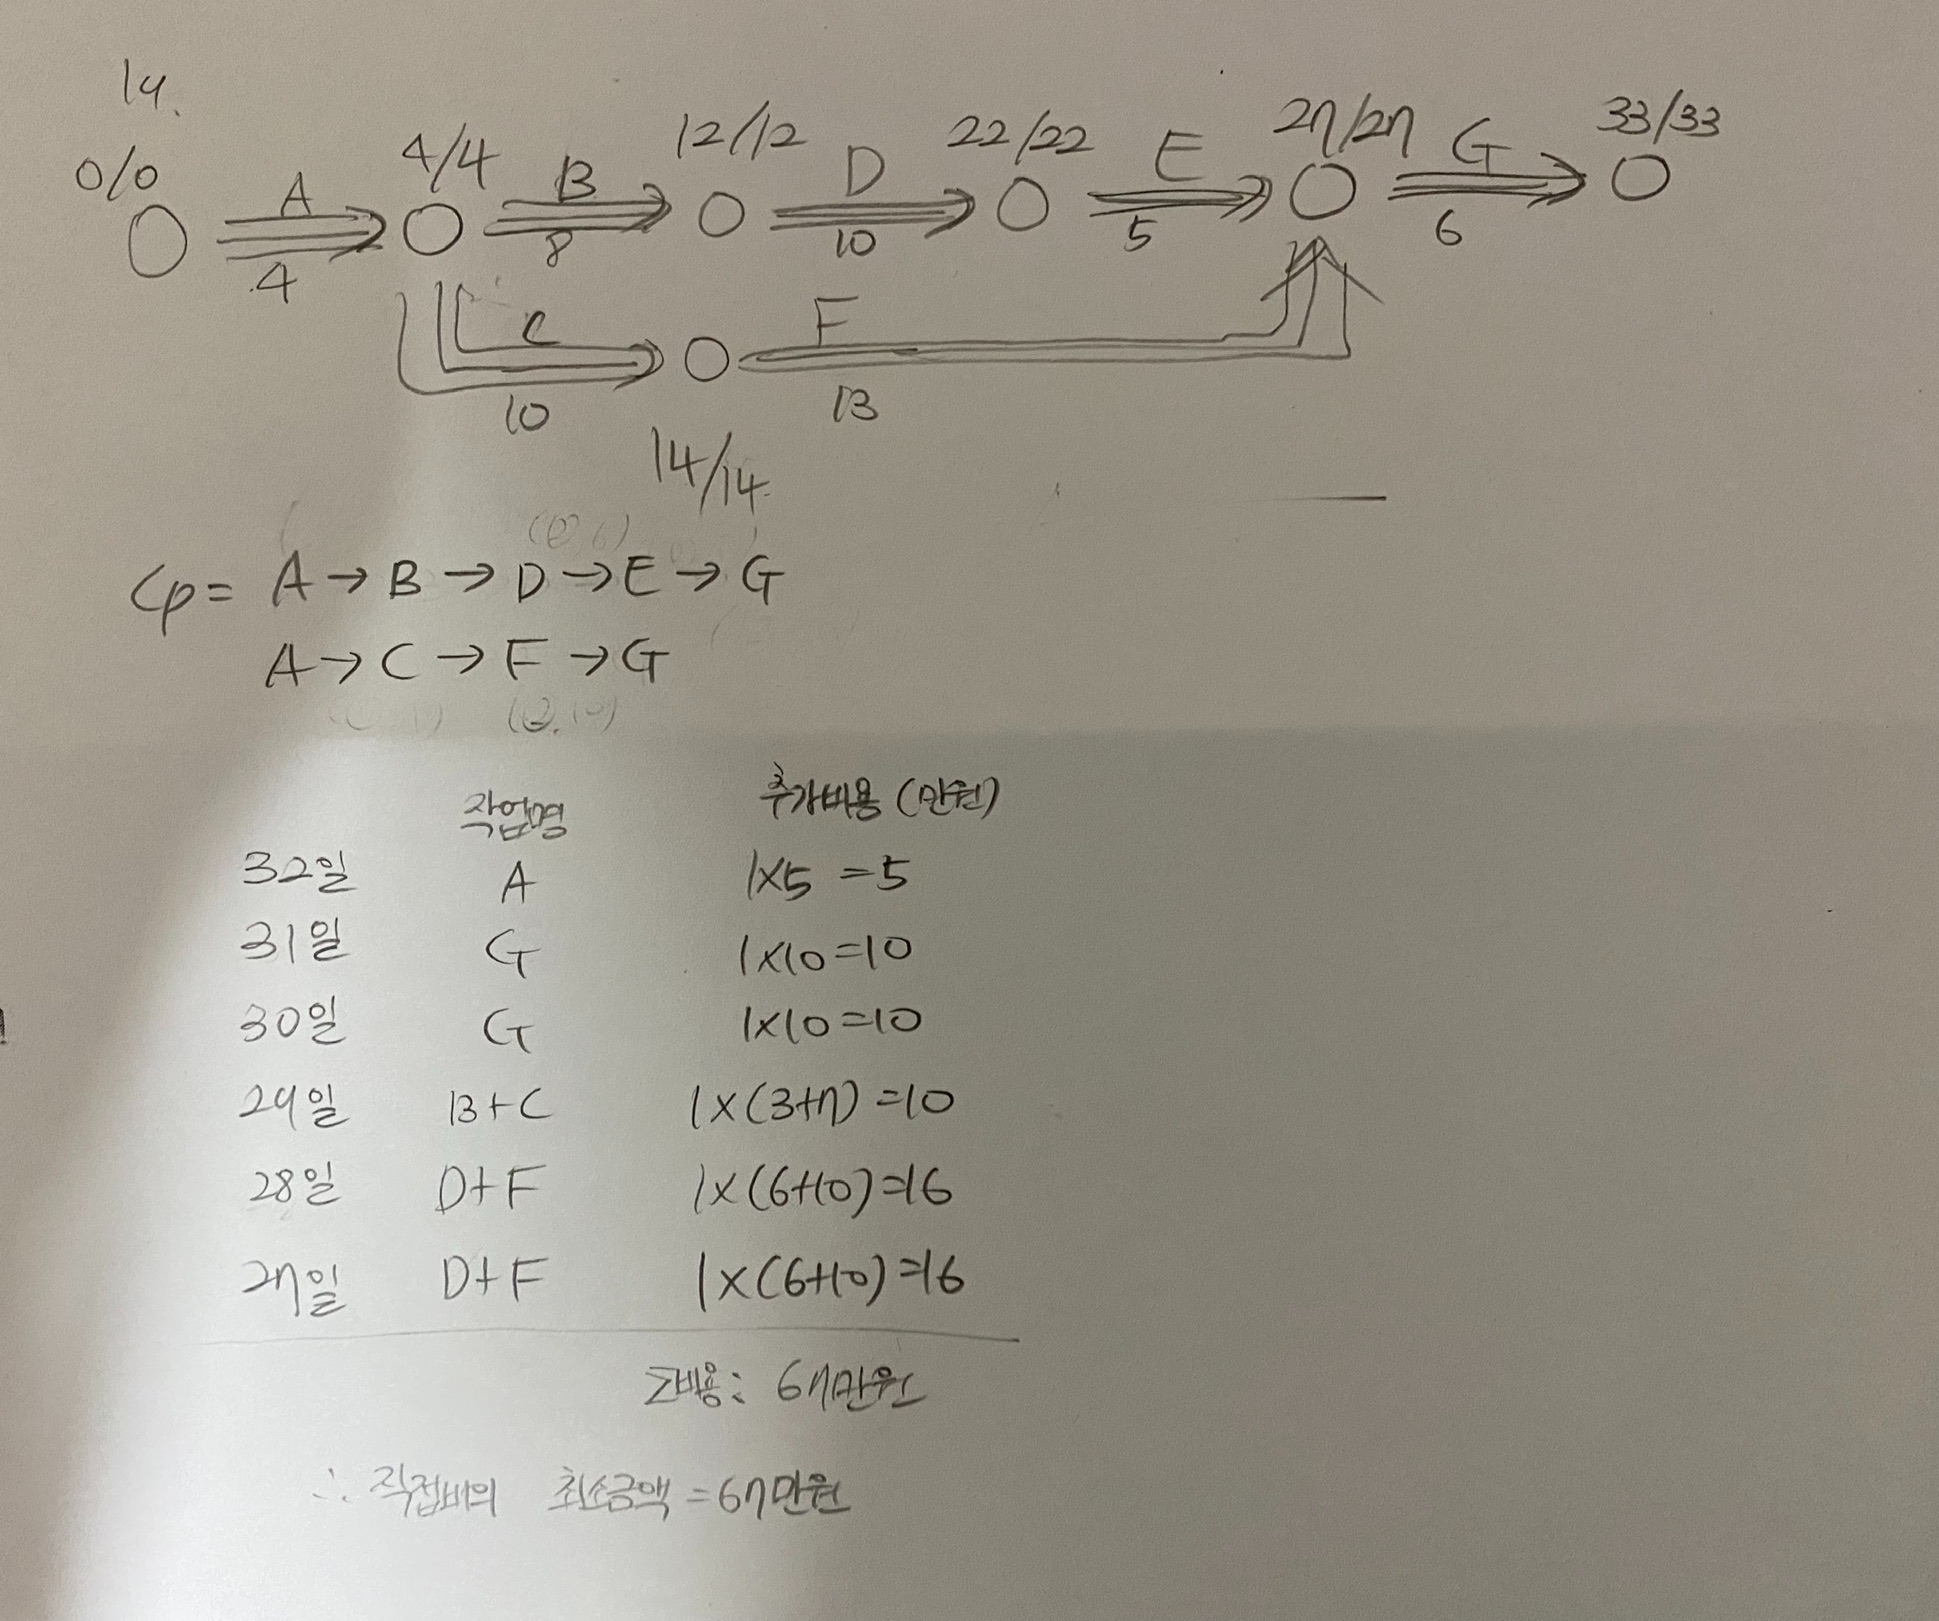 14.
0/0 A 4 4/4 B 8 12/12 D 10 22/22 E 5 27/27 G 6 33/33
C 10 14/14 F 13
Cp= A → B → D → E → G
A → C → F → G
작업명 추가비용 (만원)
32일 A 1×5=5
31일 G 1×10=10
30일 G 1×10=10
29일 B+C 1×(3+7)=10
28일 D+F 1×(6+10)=16
27일 D+F 1×(6+10)=16
Σ비용: 67만원
∴ 직접비의 최소금액 = 67만원